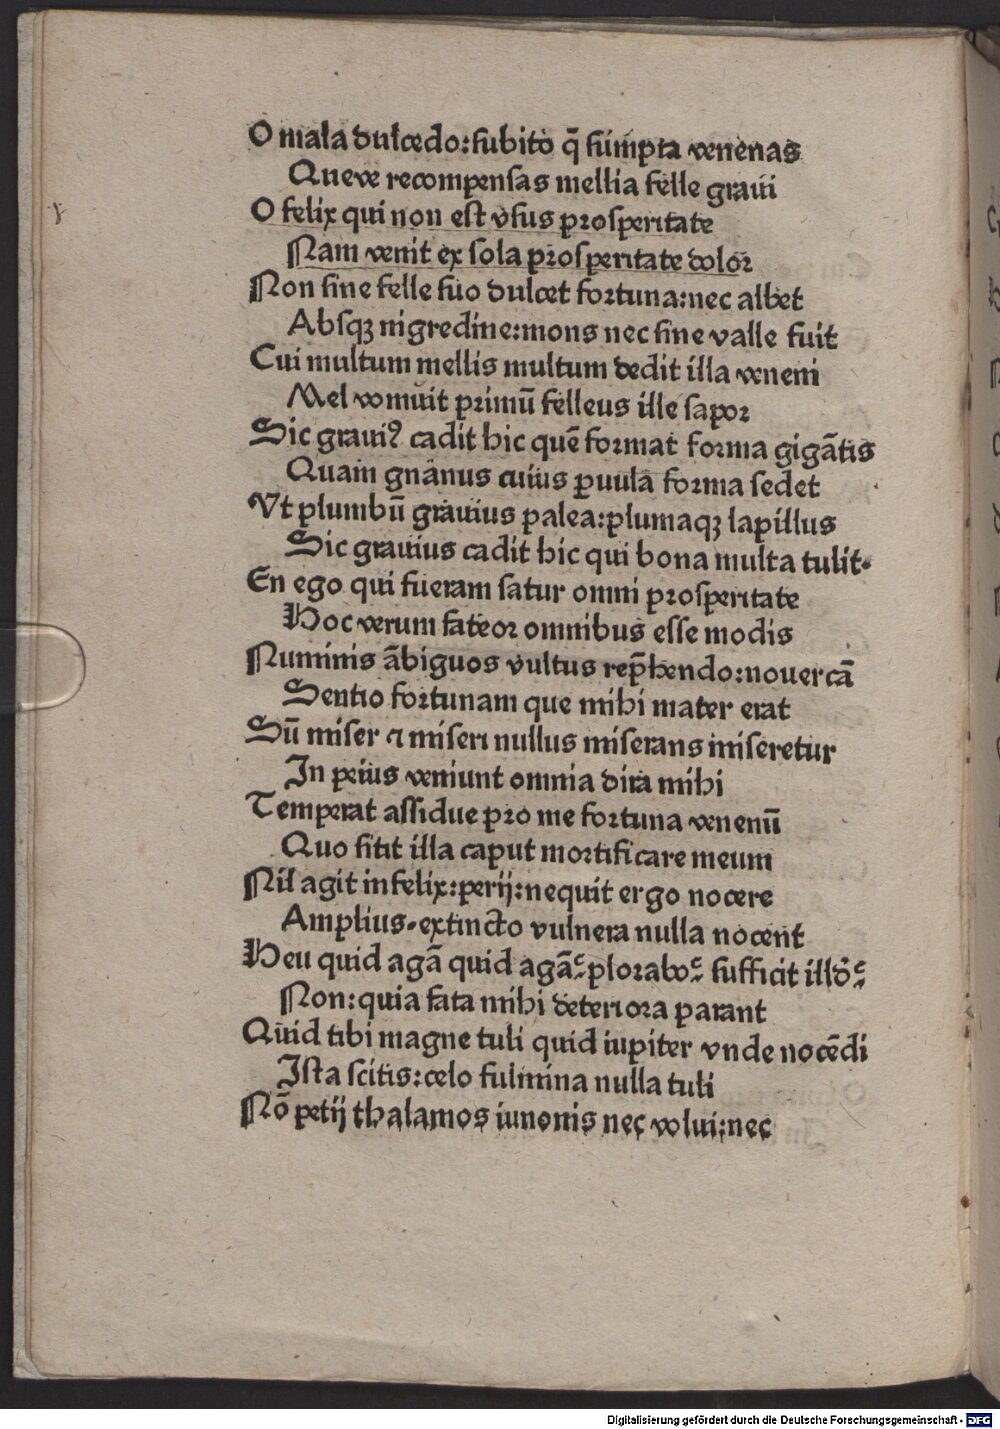 O mala dulcedo: subito q̄ sumpta venenas
Queve recompensas mellia felle graui
O felix qui non est vsus prosperitate
Nam venit ex sola prosperitate dolor
Non sine felle suo dulcet fortuna: nec albet
Absqꝫ nigredine: mons nec sine valle fuit
Cui multum mellis multum dedit illa veneni
Mel vomuit primū felleus ille sapor
Sic graui⁹ cadit hic quē format forma gigātis
Quam gnanus cuius ꝑuula forma sedet
Vt plumbū grauius palea: plumaqꝫ lapillus
Sic grauius cadit hic qui bona multa tulit.
En ego qui fueram satur omni prosperitate
Hoc verum fateor omnibus esse modis
Numinis ābiguos vultus rep̄hendo: nouercā
Sentio fortunam que mihi mater erat
Sū miser ⁊ miseri nullus miserans miseretur
In peius veniunt omnia dira mihi
Temperat assidue pro me fortuna venenū
Quo sitit illa caput mortificare meum
Nil agit infelix: perij: nequit ergo nocere
Amplius. extincto vulnera nulla nocent
Heu quid agā quid agā? plorabo? sufficit illō?
Non: quia fata mihi deteriora parant
Quid tibi magne tuli quid iupiter vnde nocēdi
Ista scitis: celo fulmina nulla tuli
Nō petij thalamos iunonis nec volui: nec
Digitalisierung gefördert durch die Deutsche Forschungsgemeinschaft - DFG